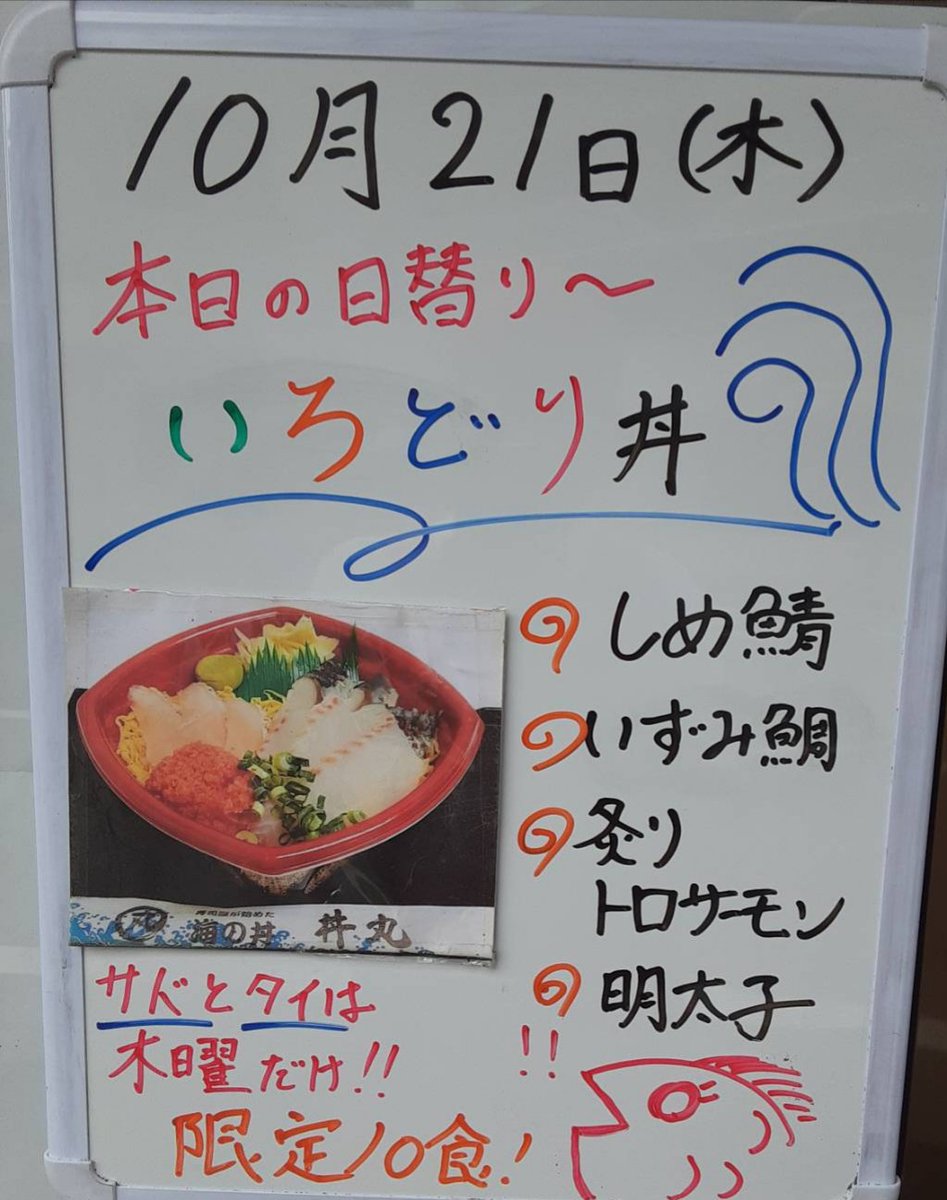 10月21日(木)
本日の日替り〜
いろどり丼
しめ鯖
いずみ鯛
炙り
トロサーモン
明太子
!!
寿司屋が始めた
海の丼 丼丸
サバとタイは
木曜だけ!!
限定10食!